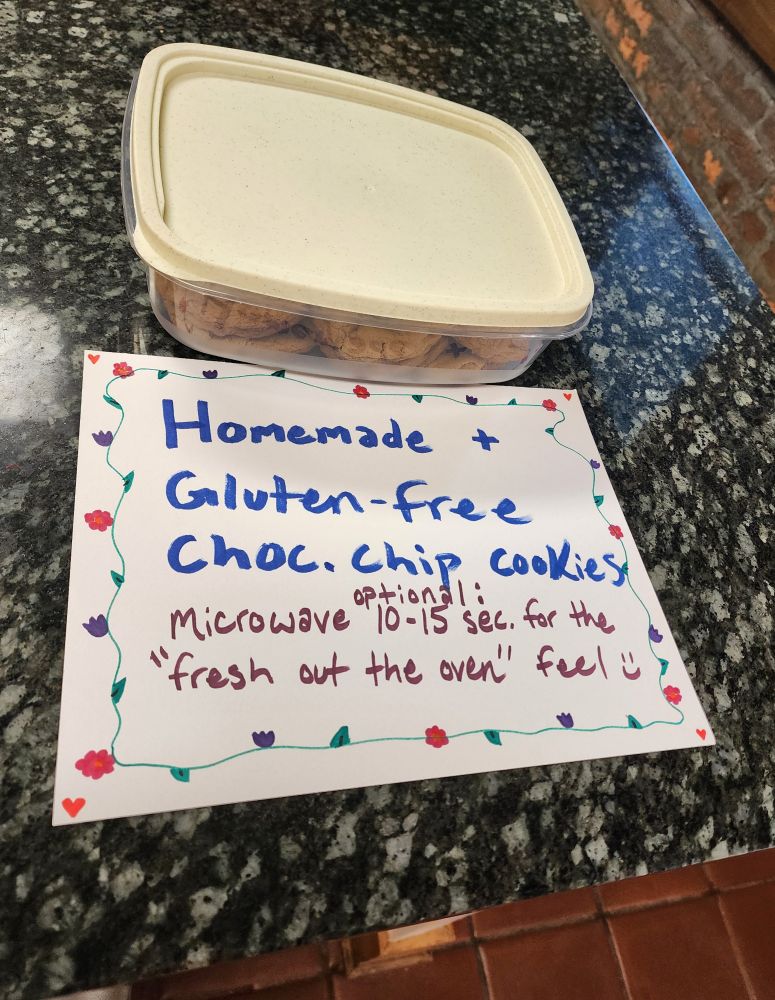 Homemade +
Gluten-free
Choc. chip cookies
optional:
Microwave 10-15 sec. for the
"fresh out the oven" feel :)